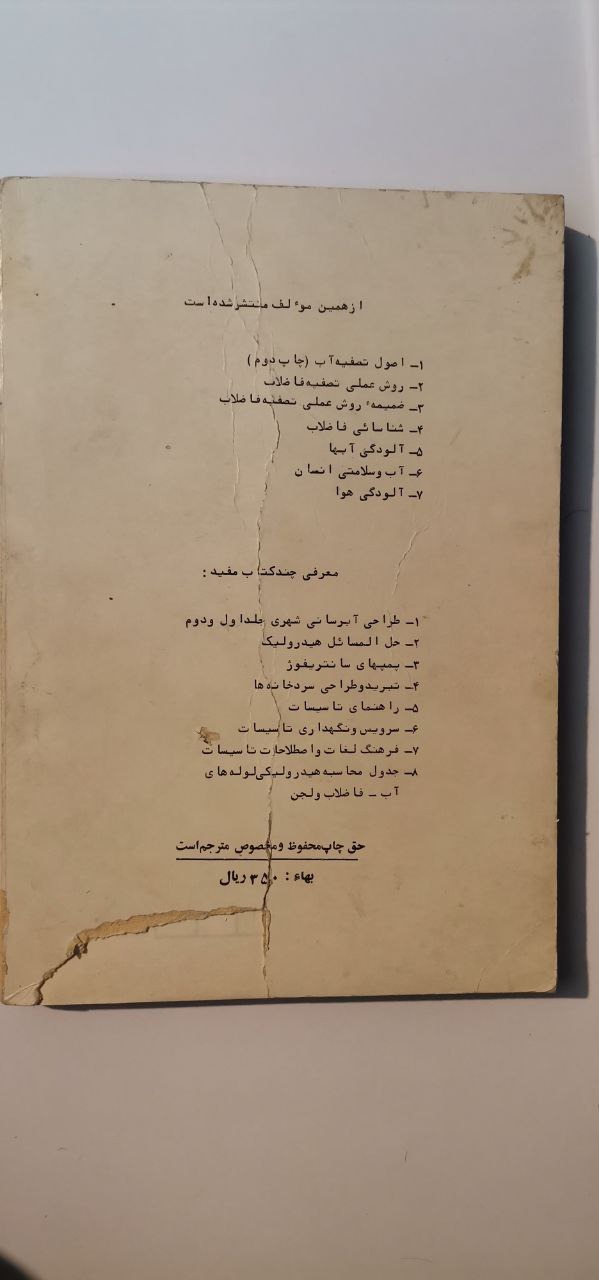 از همین موٴلف منتشر شده است
۱ـ اصول تصفیه آب (چاپ دوم)
۲ـ روش عملی تصفیه فاضلاب
۳ـ ضمیمهٴ روش عملی تصفیه فاضلاب
۴ـ شناسائی فاضلاب
۵ـ آلودگی آبها
۶ـ آب وسلامتی انسان
۷ـ آلودگی هوا
معرفی چند کتاب مفید :
۱ـ طراحی آبرسانی شهری جلد اول ودوم
۲ـ حل المسائل هیدرولیک
۳ـ پمپهای سانتریفوژ
۴ـ تبرید وطراحی سردخانه ها
۵ـ راهنمای تاسیسات
۶ـ سرویس ونگهداری تاسیسات
۷ـ فرهنگ لغات واصطلاحات تاسیسات
۸ـ جدول محاسبه هیدرولیکی لوله های
آب ـ فاضلاب ولجن
حق چاپ محفوظ ومخصوص مترجم است
بهاء : ۳۵۰ ریال